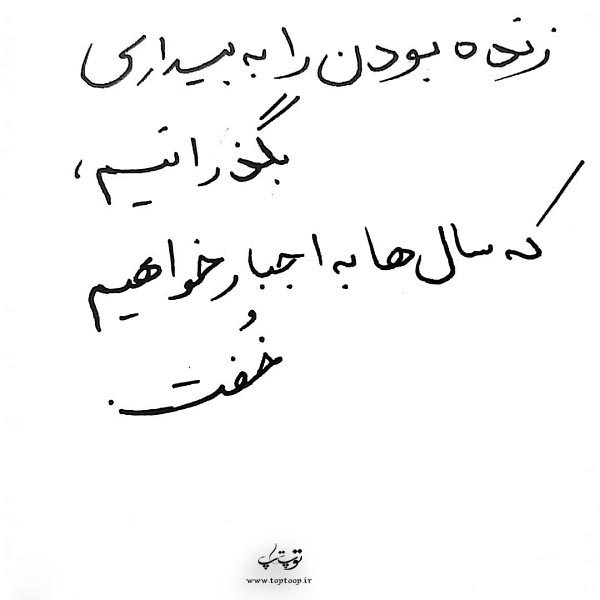 زنده بودن را به بیداری
بگذرانیم،
که سال‌ها به اجبار خواهیم
خُفت.
توپ تاپ
www.toptoop.ir